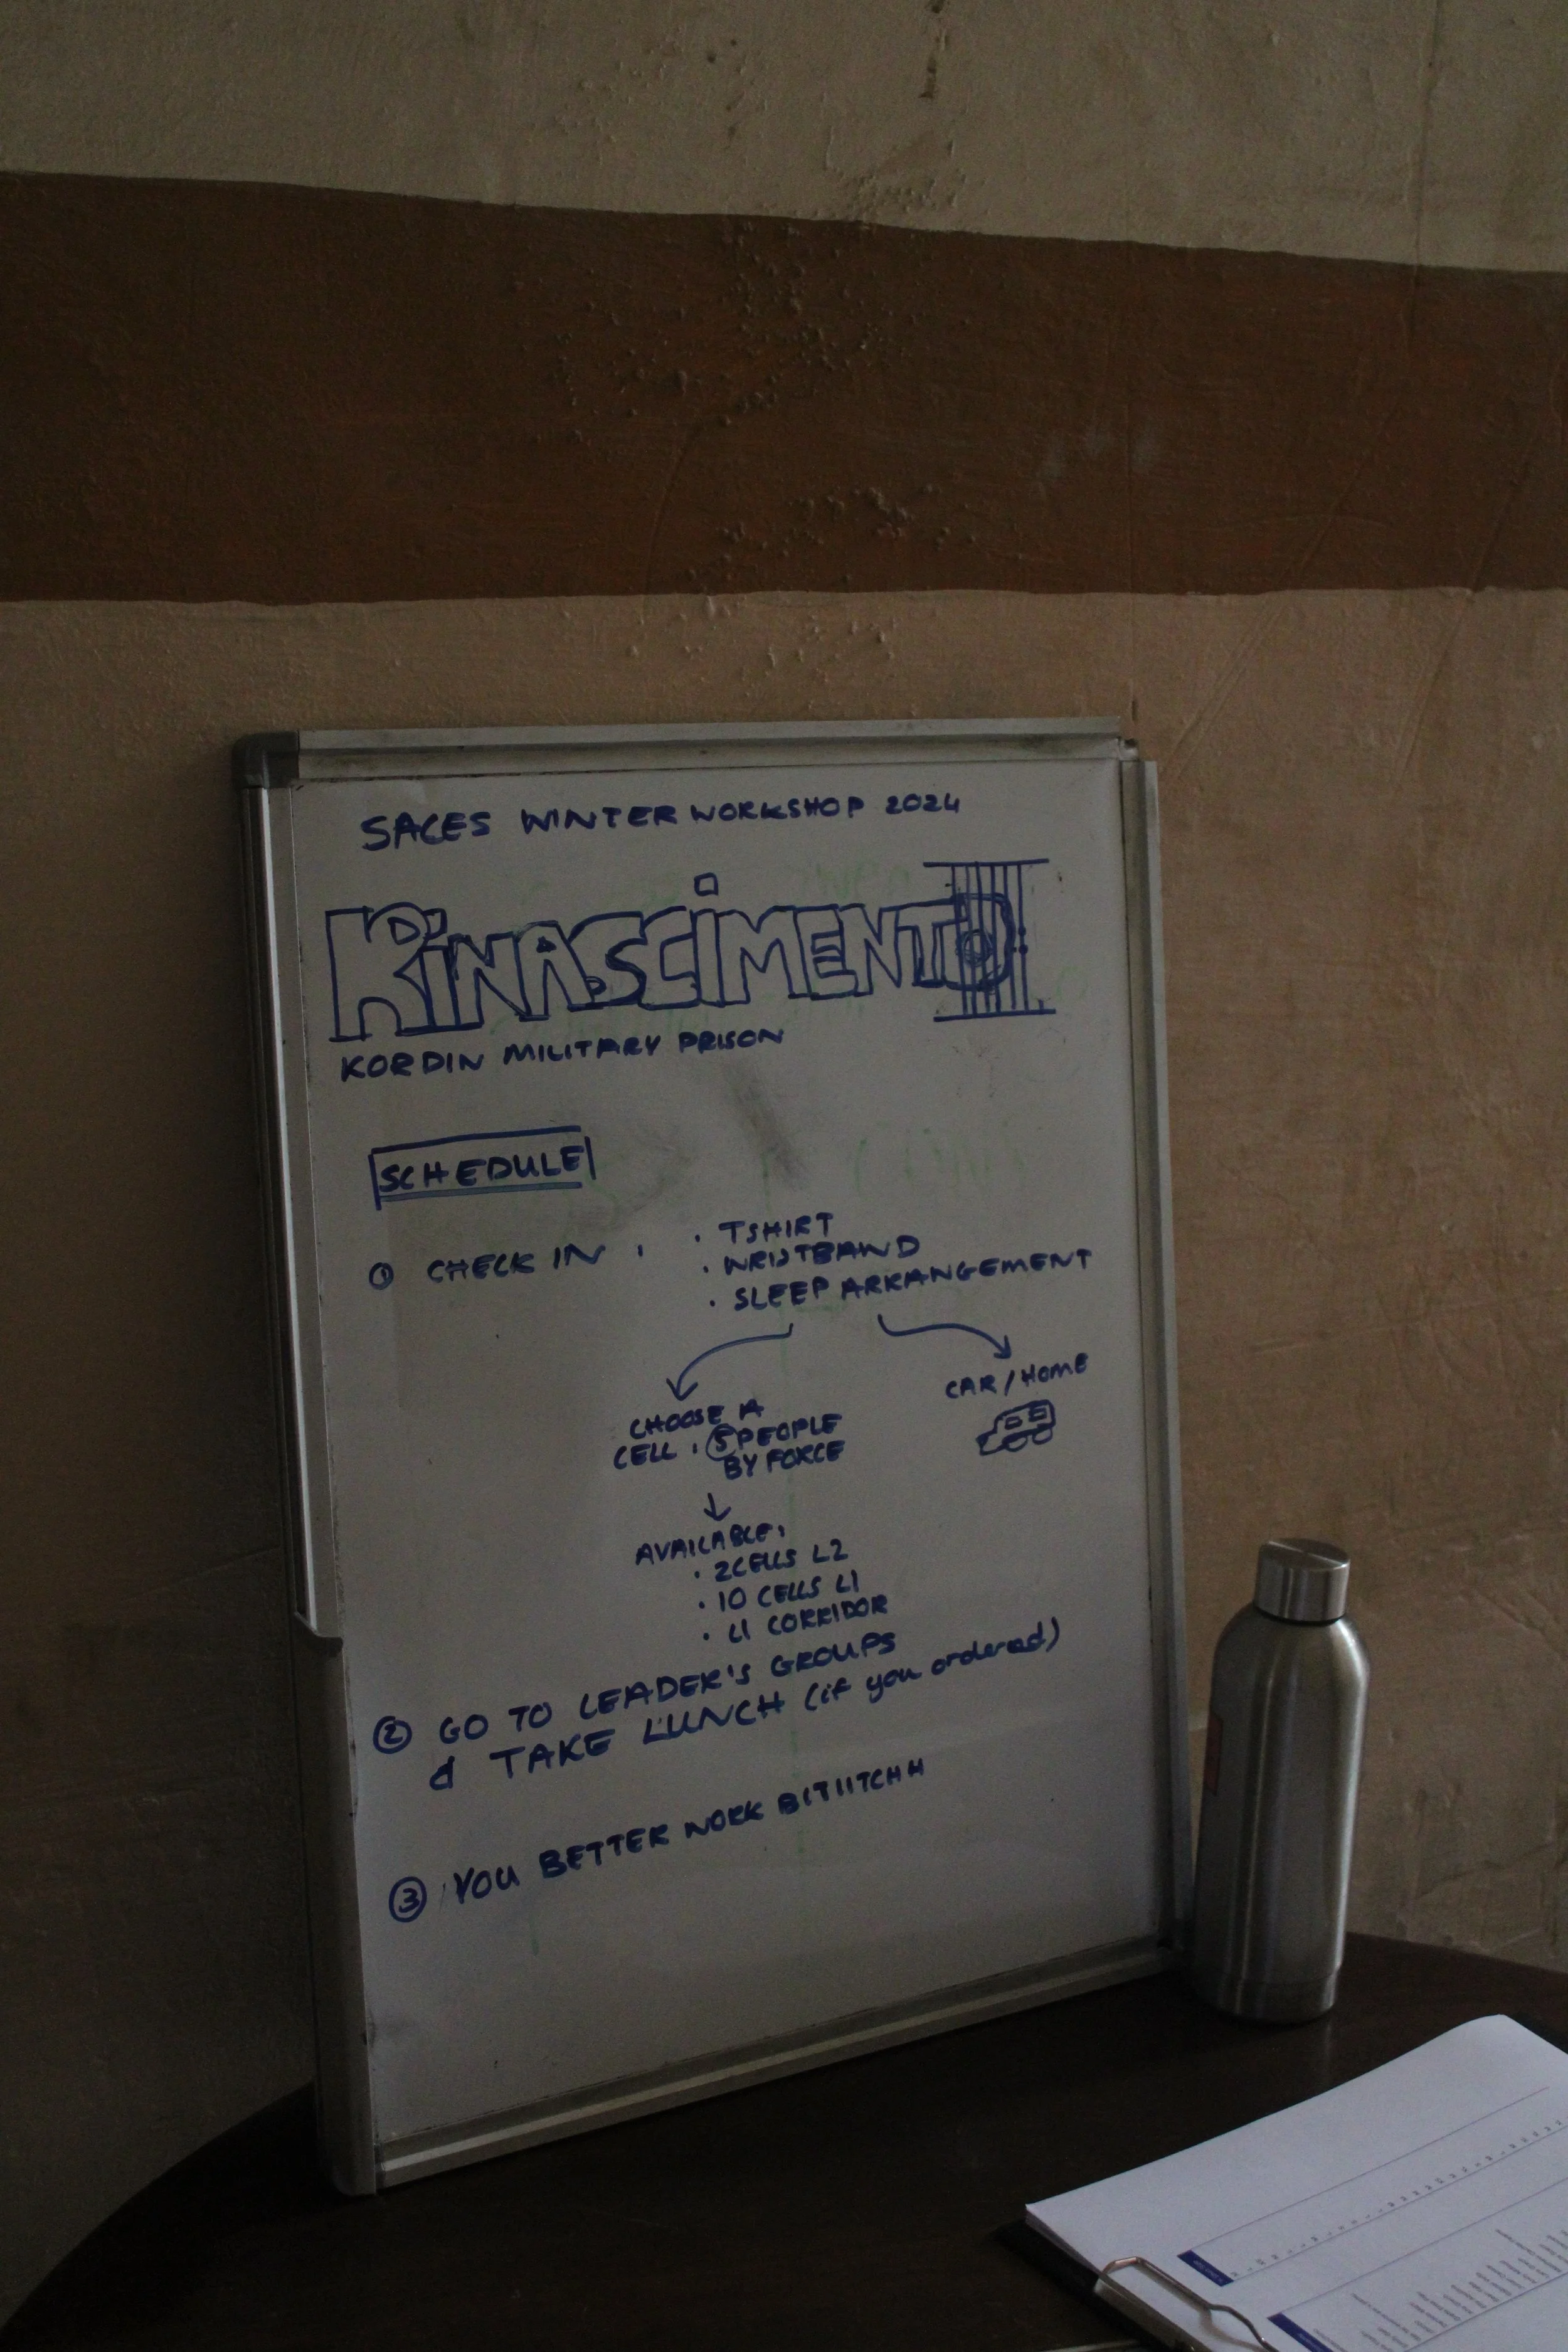 SACES WINTER WORKSHOP 2024
RINASCIMENTO
KORDIN MILITARY PRISON
SCHEDULE
① CHECK IN : · TSHIRT
· WRISTBAND
· SLEEP ARRANGEMENT
CAR / HOME
CHOOSE A
CELL : 5 PEOPLE
BY FORCE
AVAILABLE:
· 2 CELLS L2
· 10 CELLS L1
· L1 CORRIDOR
② GO TO LEADER'S GROUPS
& TAKE LUNCH (if you ordered)
③ YOU BETTER WORK BITIITCHH